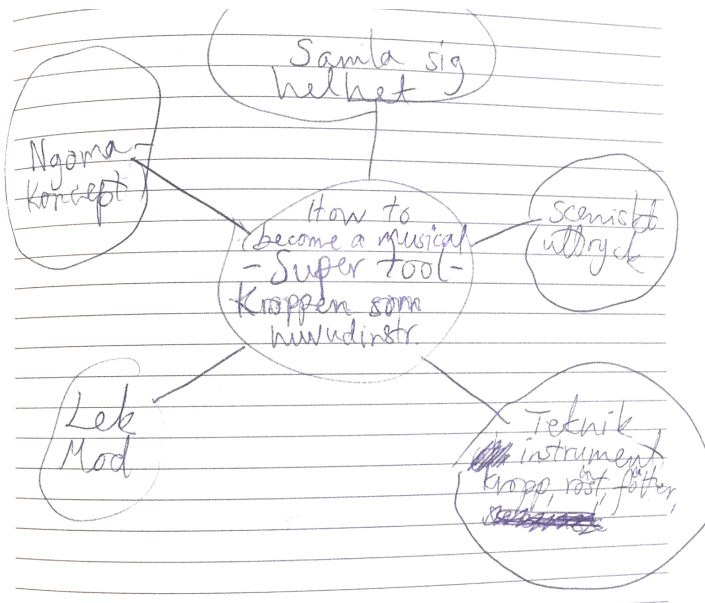 Samla sig
helhet
Ngoma-
koncept
How to
become a musical
- Super tool -
Kroppen som
huvudinstr.
sceniskt
uttryck
Lek
Mod
Teknik
instrument
kropp, röst, fötter,